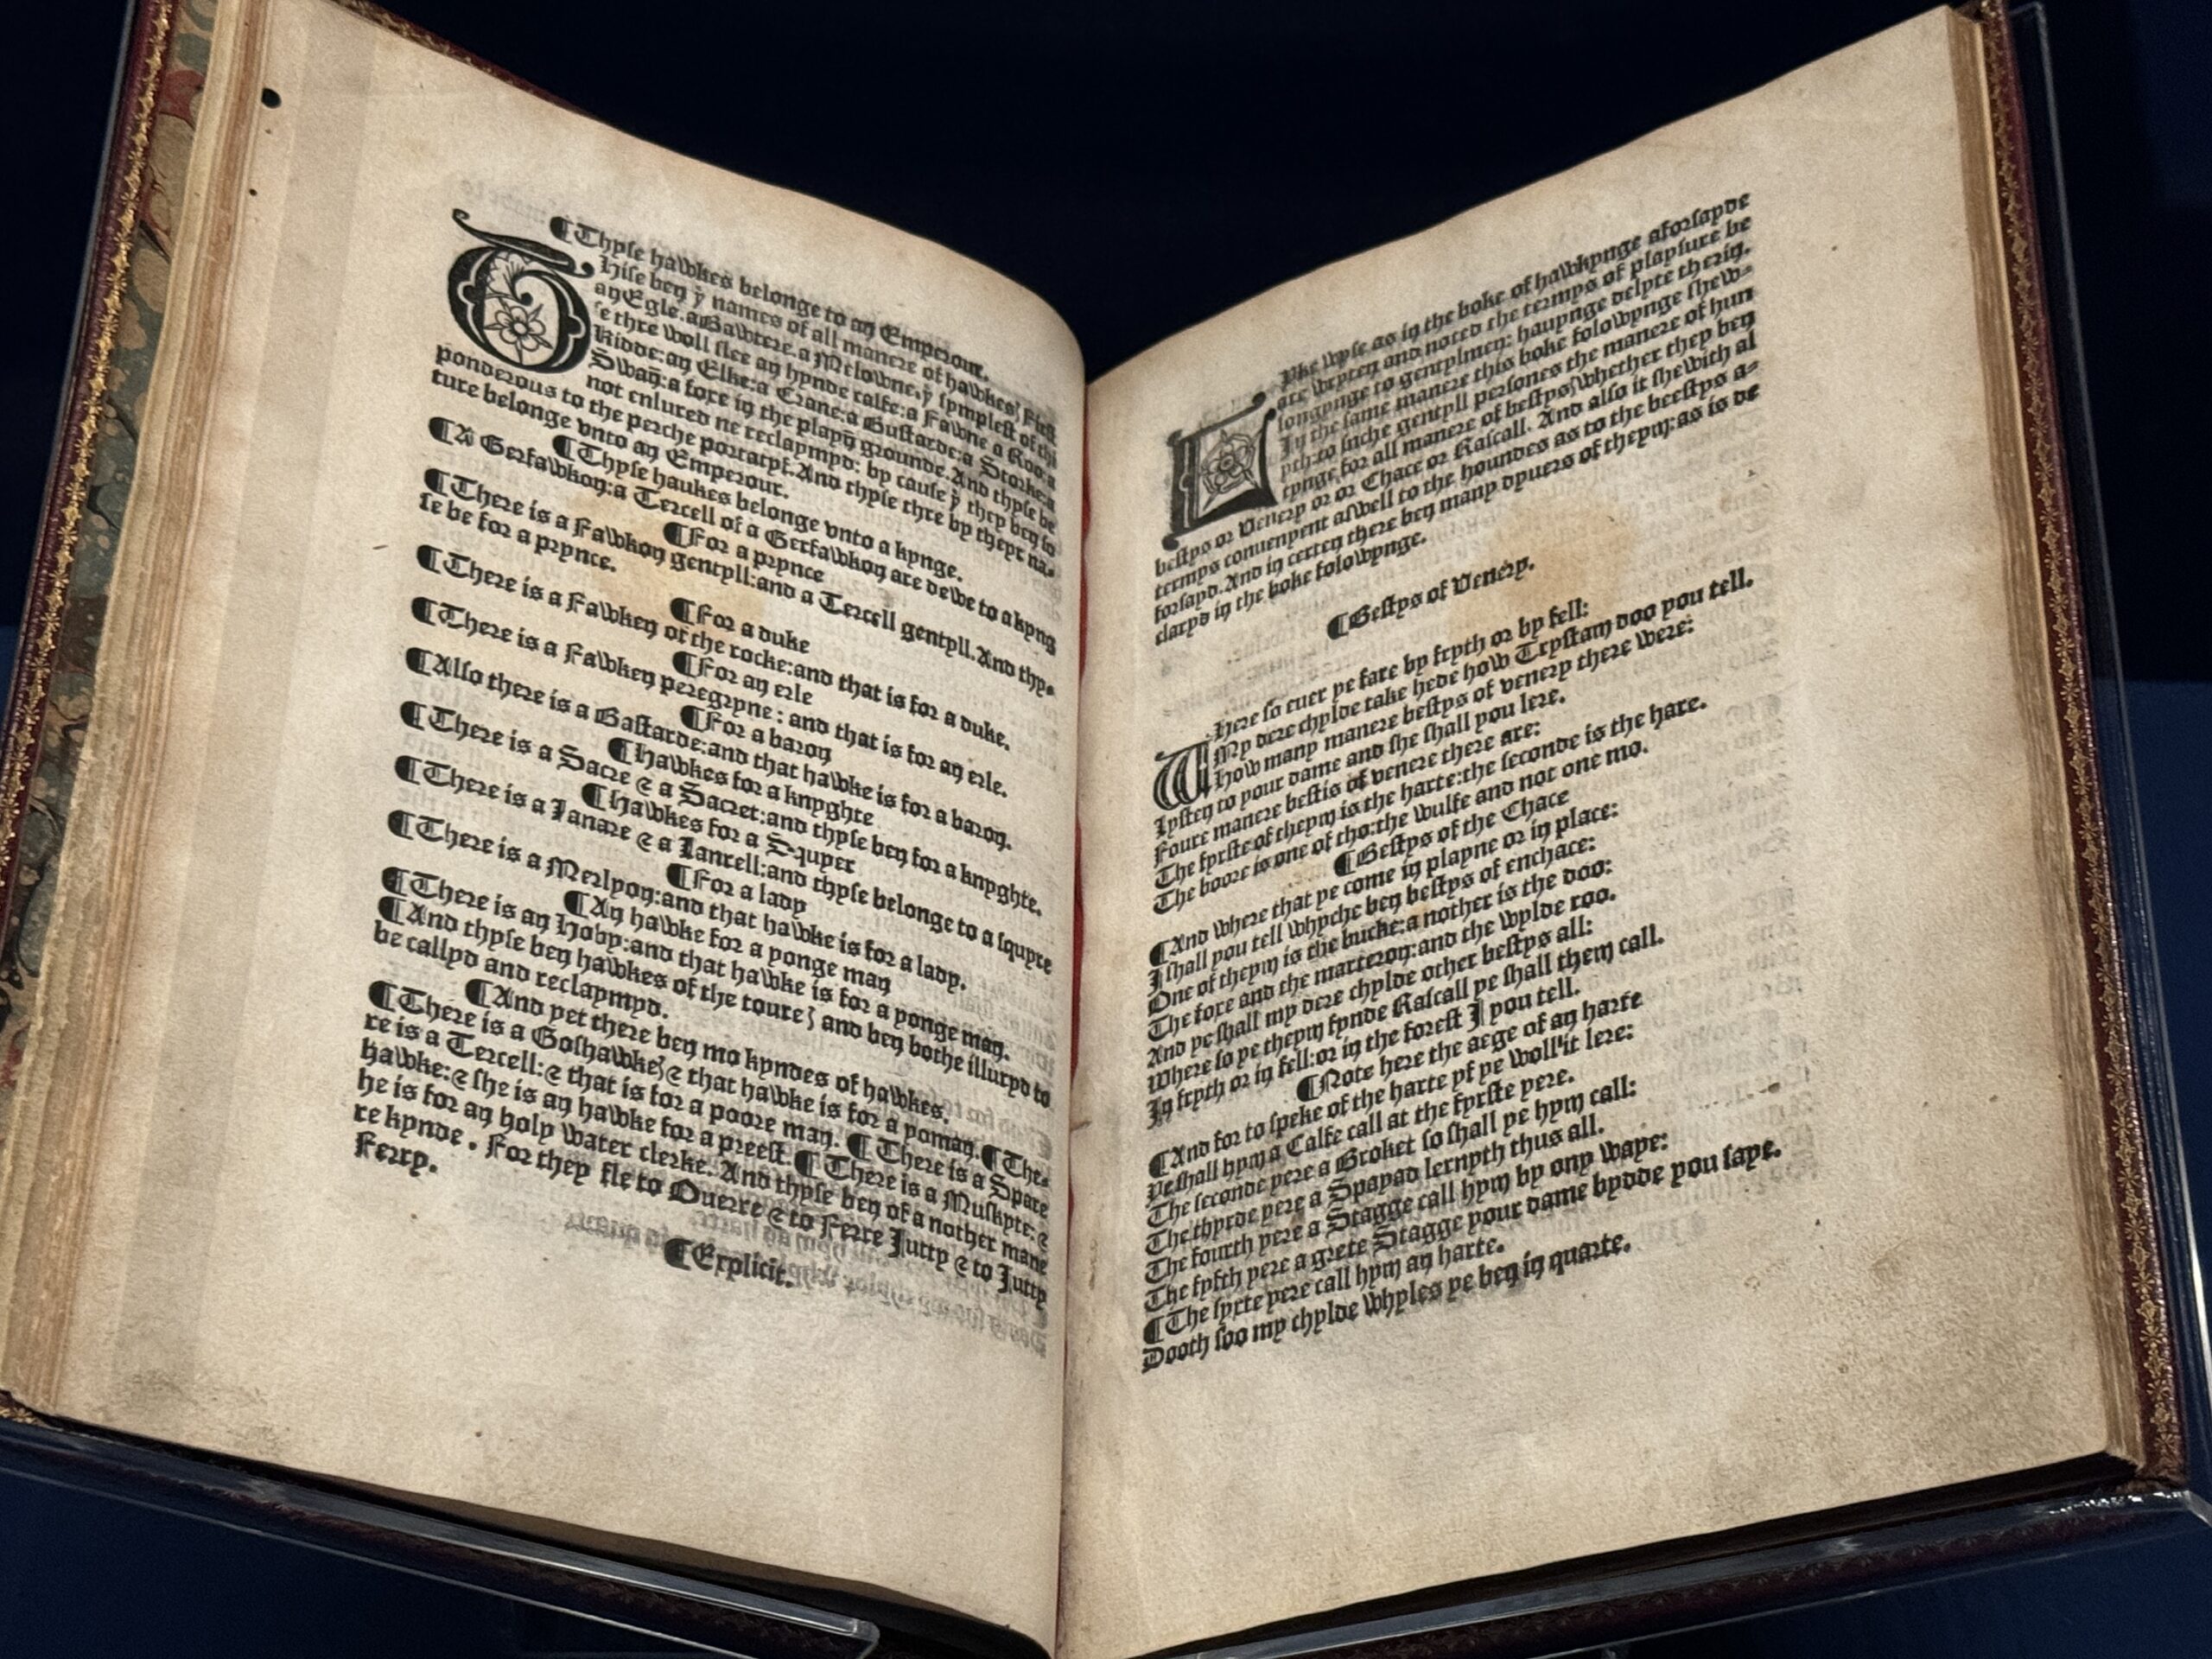 ¶Thyſe hawkes belonge to an Emperour.
THiſe ben yͤ names of all manere of hawkes/ Firſt
an Egle.a Bawtere.a Melowne.yͤ ſympleſt of thi
ſe thre woll ſlee an hynde calfe:a Fawne a Roo:a
Kidde:an Elke:a Crane:a Buſtarde:a Storke:a
Swan̄:a foxe in the playn̄ grounde.And thyſe be
not enlured ne reclaymyd: by cauſe yͭ they ben ſo
ponderous to the perche portatyf.And thyſe thre by theyr na-
ture belonge vnto an Emperour.
¶Thyſe haukes belonge vnto a kynge.
¶A Gerfawkon:a Tercell of a Gerfawkon are dewe to a kyng
¶For a prynce
¶There is a Fawkon gentyll:and a Tercell gentyll.And thy-
ſe be for a prynce.
¶For a duke
¶There is a Fawken of the rocke:and that is for a duke.
¶For an erle
¶There is a Fawken peregryne: and that is for an erle.
¶For a baron
¶Alſo there is a Baſtarde:and that hawke is for a baron.
¶Hawkes for a knyghte
¶There is a Sacre & a Sacret:and thyſe ben for a knyghte.
¶Hawkes for a Squyer
¶There is a Lanare & a Lanrell:and thyſe belonge to a ſquyre
¶For a lady
¶There is a Merlyon:and that hawke is for a lady.
¶An hawke for a yonge man
¶There is an Hoby:and that hawke is for a yonge man.
¶And thyſe ben hawkes of the toure/ and ben bothe illuryd to
be callyd and reclaymyd.
¶And yet there ben mo kyndes of hawkes.
¶There is a Goſhawke/& that hawke is for a yoman.¶The-
re is a Tercell:& that is for a poore man. ¶There is a Spare
hawke:& ſhe is an hawke for a preeſt.¶There is a Muſkyte:&
he is for an holy water clerke. And thyſe ben of a nother mane
re kynde. For they fle to Querre & to Ferre Jutty & to Jutty
Ferry.
¶Explicit.
LYke wyſe as in the boke of hawkynge aforſayde
are wryten and noted the termys of playſure be
longynge to gentylmen: hauynge delyte therin.
In the ſame manere this boke folowynge ſhew-
yth:to ſuche gentyll perſones the manere of hun
tynge for all manere of beſtys/whether they ben
beſtys or Venery or or Chace or Raſcall. And alſo it ſhewith al
termys conuenyent aſwell to the houndes as to the beeſtys a-
forſayd.And in certen there ben many dyuers of theym:as is de
claryd in the boke folowynge.
¶Beſtys of Venery.
WHere ſo euer ye fare by fryth or by fell:
My dere chylde take hede how Tryſtam doo you tell.
How many manere beſtys of venery there were:
Lyſten to your dame and ſhe ſhall you lere.
Foure manere beſtis of venere there are:
The fyrſte of theym is the harte:the ſeconde is the hare.
The boore is one of tho:the wulfe and not one mo.
¶Beſtys of the Chace
¶And where that ye come in playne or in place:
I ſhall you tell whyche ben beſtys of enchace:
One of theym is the bucke:a nother is the doo:
The foxe and the marteron:and the wylde roo.
And ye ſhall my dere chylde other beſtys all:
Where ſo ye theym fynde Raſcall ye ſhall them call.
In fryth or in fell:or in the foreſt I you tell.
¶Note here the aege of an harte
¶And for to ſpeke of the harte yf ye woll it lere:
Ye ſhall hym a Calfe call at the fyrſte yere.
The ſeconde yere a Broket ſo ſhall ye hym call:
The thyrde yere a Spayad lernyth thus all.
The fourth yere a Stagge call hym by ony waye:
The fyfth yere a grete Stagge your dame bydde you ſaye.
¶The ſyxte yere call hym an harte.
Dooth ſoo my chylde whyles ye ben in quarte.